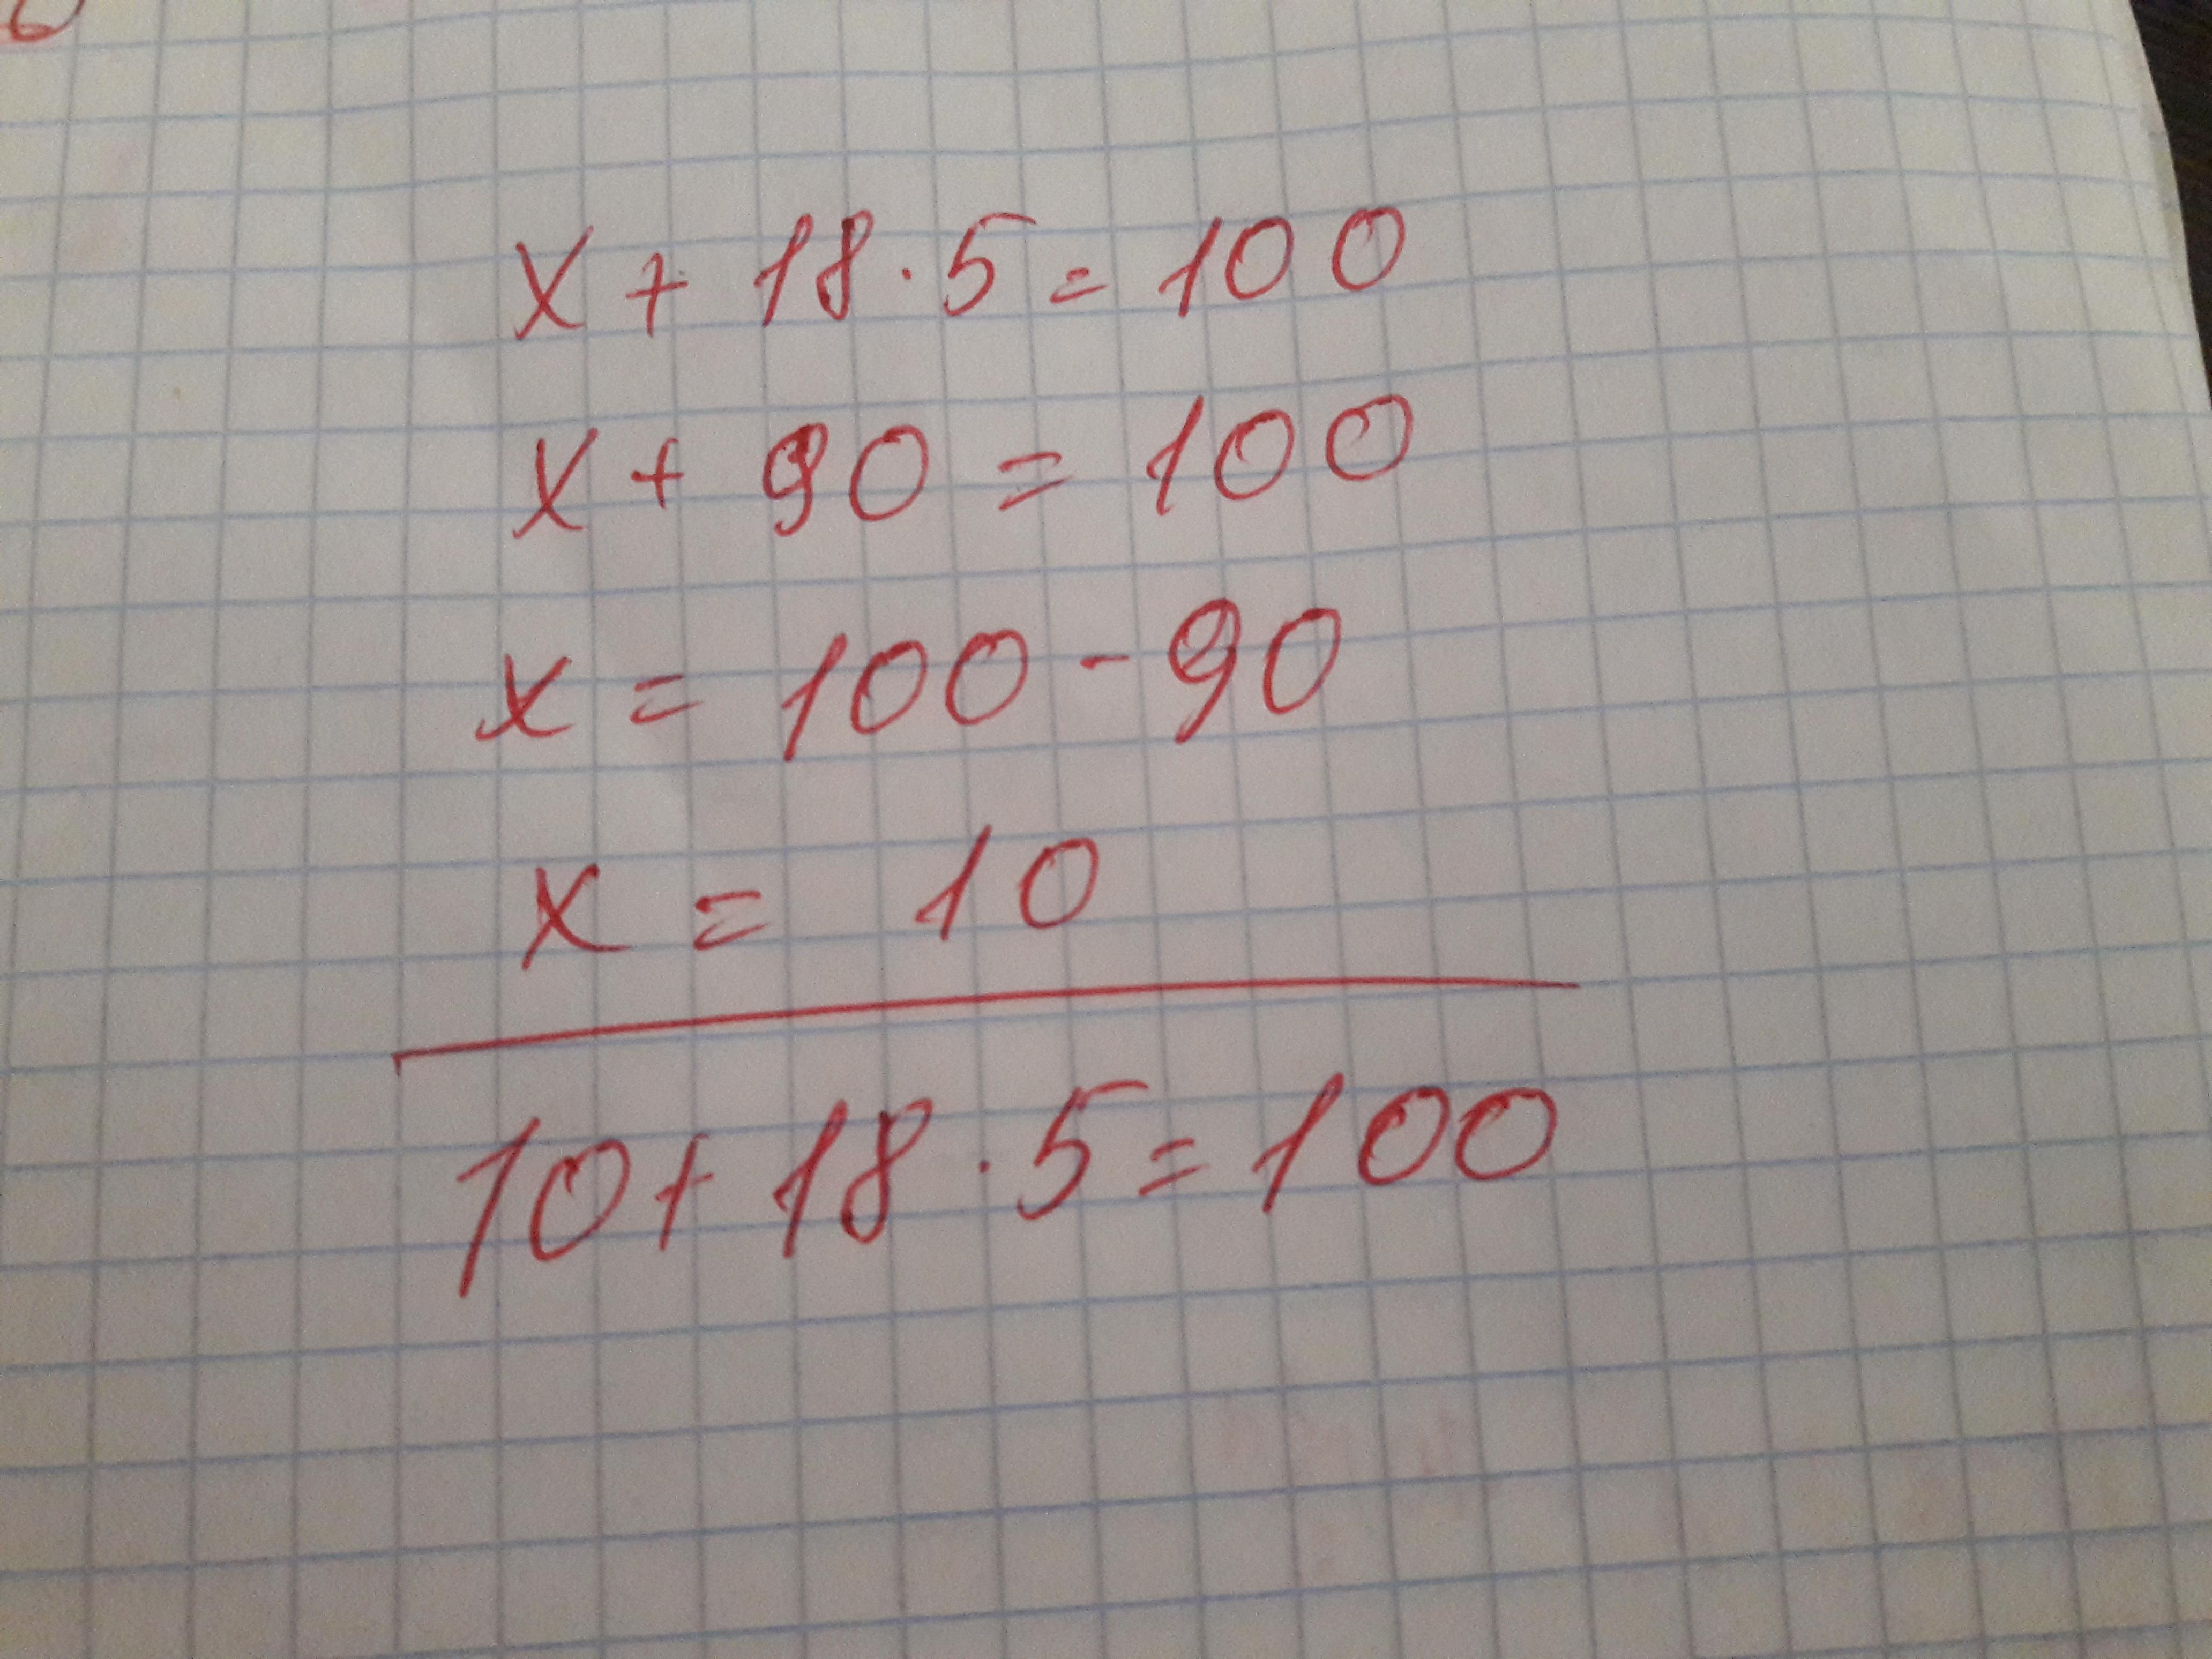 x + 18 · 5 = 100
x + 90 = 100
x = 100 - 90
x = 10
10 + 18 · 5 = 100